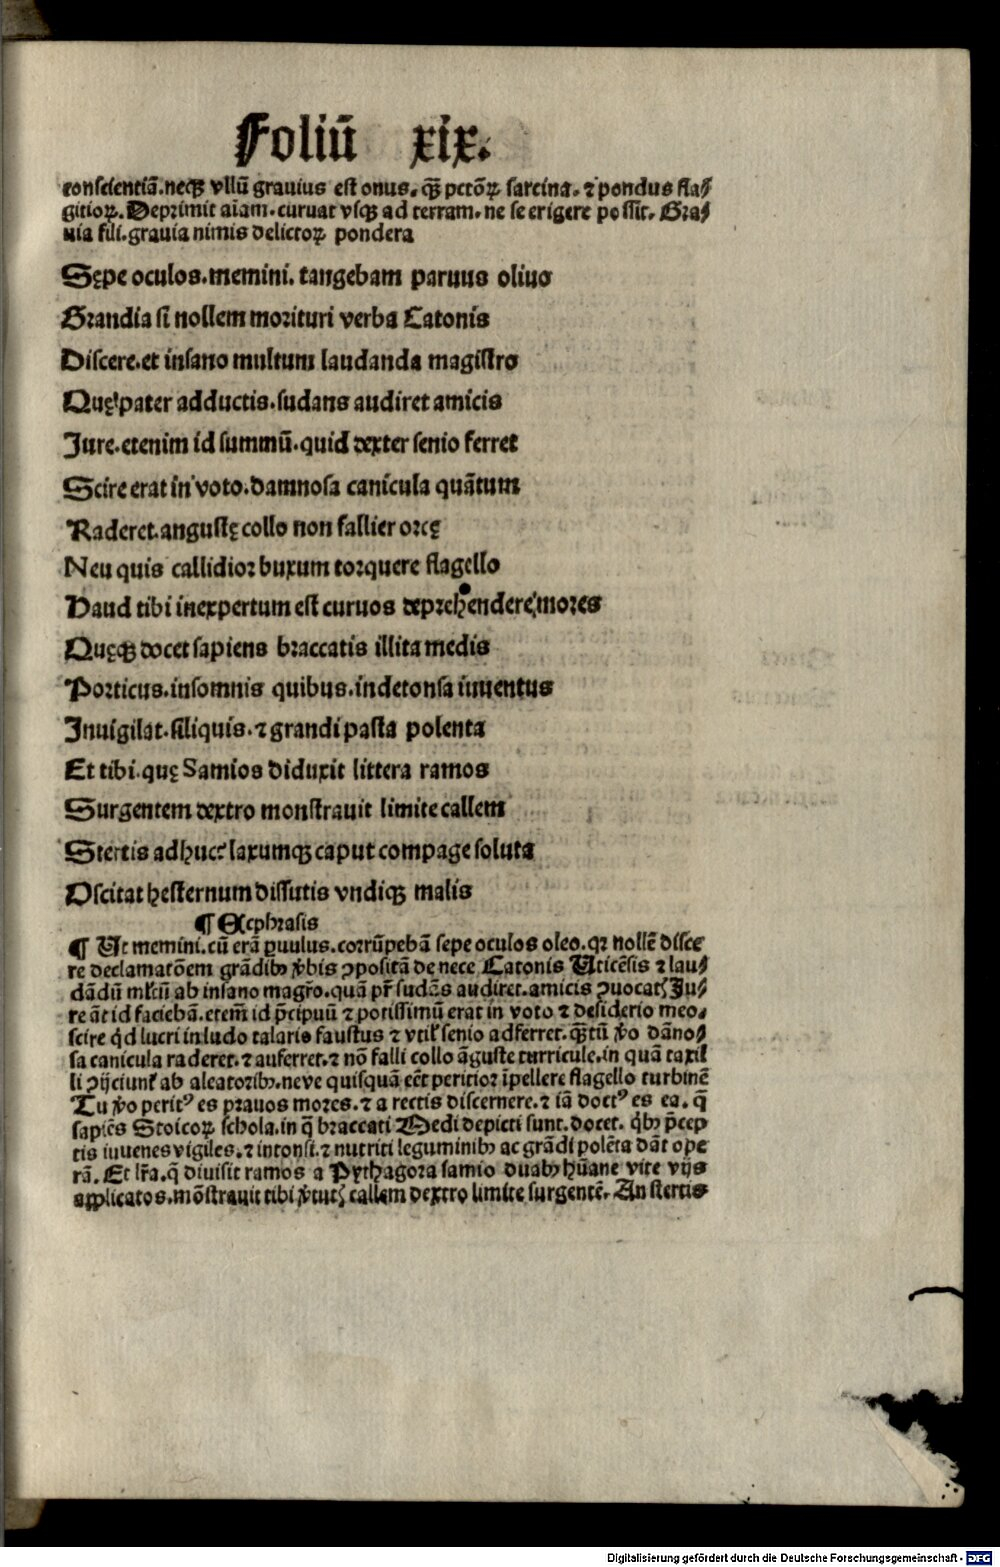 Foliū xix.
conscientiā.neqꝫ vllū grauius est onus.qꝫ pctōꝝ sarcina.⁊ pondus fla⸗
gitioꝝ.Deprimit aīam.curuat vsqꝫ ad terram.ne se erigere possit.Gra⸗
uia fili.grauia nimis delictoꝝ pondera
Sępe oculos.memini.tangebam paruus oliuo
Grandia si nollem morituri verba Catonis
Discere.et insano multum laudanda magistro
Quę pater adductis.sudans audiret amicis
Jure.etenim id summū.quid dexter senio ferret
Scire erat in voto.damnosa canicula quātum
Raderet.angustę collo non fallier orcę
Neu quis callidior buxum torquere flagello
Haud tibi inexpertum est curuos deprehendere mores
Quęqꝫ docet sapiens braccatis illita medis
Porticus.insomnis quibus.indetonsa iuuentus
Inuigilat.siliquis.⁊ grandi pasta polenta
Et tibi.quę Samios diduxit littera ramos
Surgentem dextro monstrauit limite callem
Stertis adhuc? laxumqꝫ caput compage soluta
Oscitat hesternum dissutis vndiqꝫ malis
¶ Ecphrasis
¶ Ut memini.cū erā ꝑuulus.corrūpebā sepe oculos oleo.qꝛ nollē disce
re declamatōem grādibꝫ ꝟbis ꝯpositā de nece Catonis Uticēsis ⁊ lau⸗
dādū mltū ab insano magrō.quā pr̄ sudās audiret.amicis ꝯuocatꝭ Ju⸗
re āt id faciebā.etem̄ id p̄cipuū ⁊ potissimū erat in voto ⁊ desiderio meo.
scire qd lucri in ludo talario faustus ⁊ vtilꝭ senio adferret.qꝫtū ꝟo dāno⸗
sa canicula raderet.⁊ auferret.⁊ nō falli collo āguste turricule.in quā taxil
li ꝯijciunt᷑ ab aleatoribꝫ.neve quisquā eēt peritior īpellere flagello turbinē
Tu ꝟo peritꝰ es prauos mores.⁊ a rectis discernere.⁊ iā doctꝰ es ea.q̄
sapiēs Stoicoꝝ schola.in q̄ braccati Medi depicti sunt.docet.qbꝫ p̄cep
tis iuuenes vigiles.⁊ intonsi.⁊ nutriti leguminibꝫ ac grādi polēta dāt ope
rā.Et lr̄a.q̄ diuisit ramos a Pythagora samio duabꝫ hūane vite vijs
applicatos.mōstrauit tibi ꝟtutꝭ callem dextro limite surgentē.An stertis
Digitalisierung gefördert durch die Deutsche Forschungsgemeinschaft - DFG